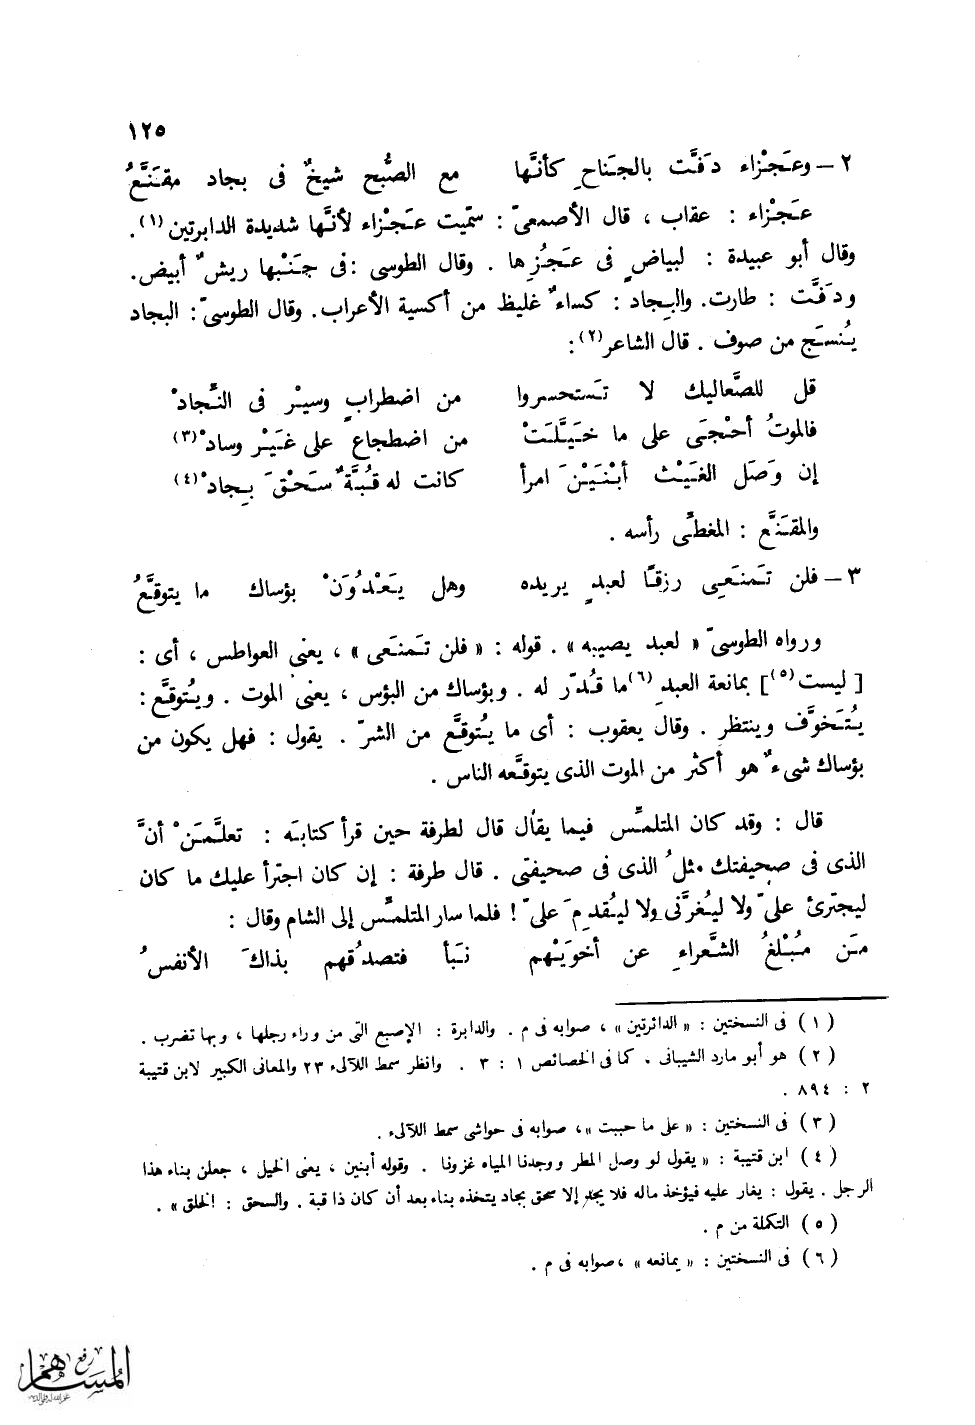 ١٢٥
٢ – وعَجْزاء دَفَّت بالجَناحِ كأنَّها مع الصُّبح شيخٌ فى بجاد مقنَّعُ
عَجْزاء : عقاب ، قال الأصمعىّ : سمّيت عَجْزاء لأنَّها شديدة الدابرتين (١) .
وقال أبو عبيدة : لبياضٍ فى عَجُزِها . وقال الطوسى : فى جَنْبها ريشٌ أبيض .
ودَفَّت : طارت . والبِجاد : كساءٌ غليظ من أكسية الأعراب . وقال الطوسىّ : البجاد
يُنسَج من صوف . قال الشاعر (٢) :
قل للصَّعاليك لا تَستحسروا من اضطرابٍ وسيْر فى النِّجادْ
فالموتُ أحْجَى على ما خَيَّلَتْ من اضطجاع على غَيْر وسادْ (٣)
إن وَصَل الغَيْث أبْنَيْنَ امرأ كانت له قُبَّةٌ سَحْقَ بِجادْ (٤)
والمقنَّع : المغطَّى رأسه .
٣ – فلن تَمنَعِى رزقًا لعبدٍ يريده وهل يَعْدُوَنْ بؤساك ما يتوقَّعُ
ورواه الطوسىّ « لعبد يصيبه » . قوله : « فلن تَمنَعى » ، يعنى العواطس ، أى :
[ ليست (٥) ] بمانعة العبدِ (٦) ما قُدّر له . وبؤساك من البؤس ، يعنى الموت . ويُتوقَّع :
يُتَخوَّف وينتظر . وقال يعقوب : أى ما يُتوقَّع من الشرّ . يقول : فهل يكون من
بؤساك شىءٌ هو أكثر من الموت الذى يتوقَّعه الناس .
قال : وقد كان المتلمِّس فيما يقال قال لطرفة حين قرأ كتابَه : تعلَّمَنْ أنَّ
الذى فى صحيفتك مثلُ الذى فى صحيفتى . قال طرفة : إن كان اجترأ عليك ما كان
ليجترئ علىّ ولا ليُغرَّنى ولا ليُقدِمَ علىّ ! فلما سار المتلمِّس إلى الشام وقال :
مَن مُبْلغُ الشَّعراءِ عن أخوَيْهم نَبأ فتصدُقهم بذاكَ الأنفسُ
( ١ ) فى النسختين : « الدائرتين » ، صوابه فى م . والدابرة : الإصبع التى من وراء رجلها ، وبها تضرب .
( ٢ ) هو أبو مارد الشيبانى . كما فى الخصائص ١ : ٣ . وانظر سمط اللآلىء ٢٣ والمعانى الكبير لابن قتيبة
٢ : ٨٩٤ .
( ٣ ) فى النسختين : « على ما حببت » ، صوابه فى حواشى سمط اللآلىء .
( ٤ ) ابن قتيبة : « يقول لو وصل المطر ووجدنا المياه غزونا . وقوله أبنين ، يعنى الخيل ، جعلن بناء هذا
الرجل . يقول : يغار عليه فيؤخذ ماله فلا يجد إلا سحق بجاد يتخذه بناء بعد أن كان ذا قبة . والسحق : الخلق » .
( ٥ ) التكملة من م .
( ٦ ) فى النسختين : « يمانعه » ، صوابه فى م .
رفع
المساهم